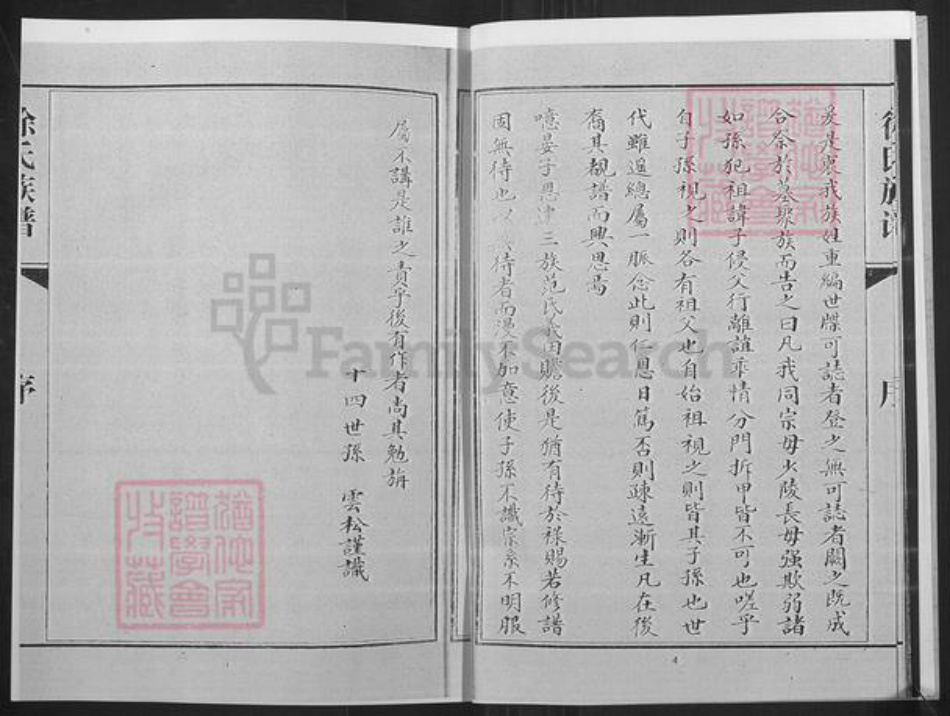 徐氏族譜
序
爰是裒我族姓重編世牒可誌者登之無可誌者闕之既成
合祭於墓聚族而告之曰凡我同宗毋少陵長毋强欺弱諸
如孫犯祖諱子侵父行離誼乖情分門拆甲皆不可也嗟乎
自子孫視之則各有祖父也自始祖視之則皆其子孫也世
代雖遥總屬一脈念此則仁恩日篤否則疎遠漸生凡在後
裔其覩譜而興思焉
噫晏子恩逮三族范氏義田贍後是猶有待於祿賜若修譜
固無待也以無待者而漫不加意使子孫不識宗系不明服
4
屬不講是誰之責乎後有作者尚其勉旃
十四世孫 雲松謹識
徐氏族譜
序
FamilySearch